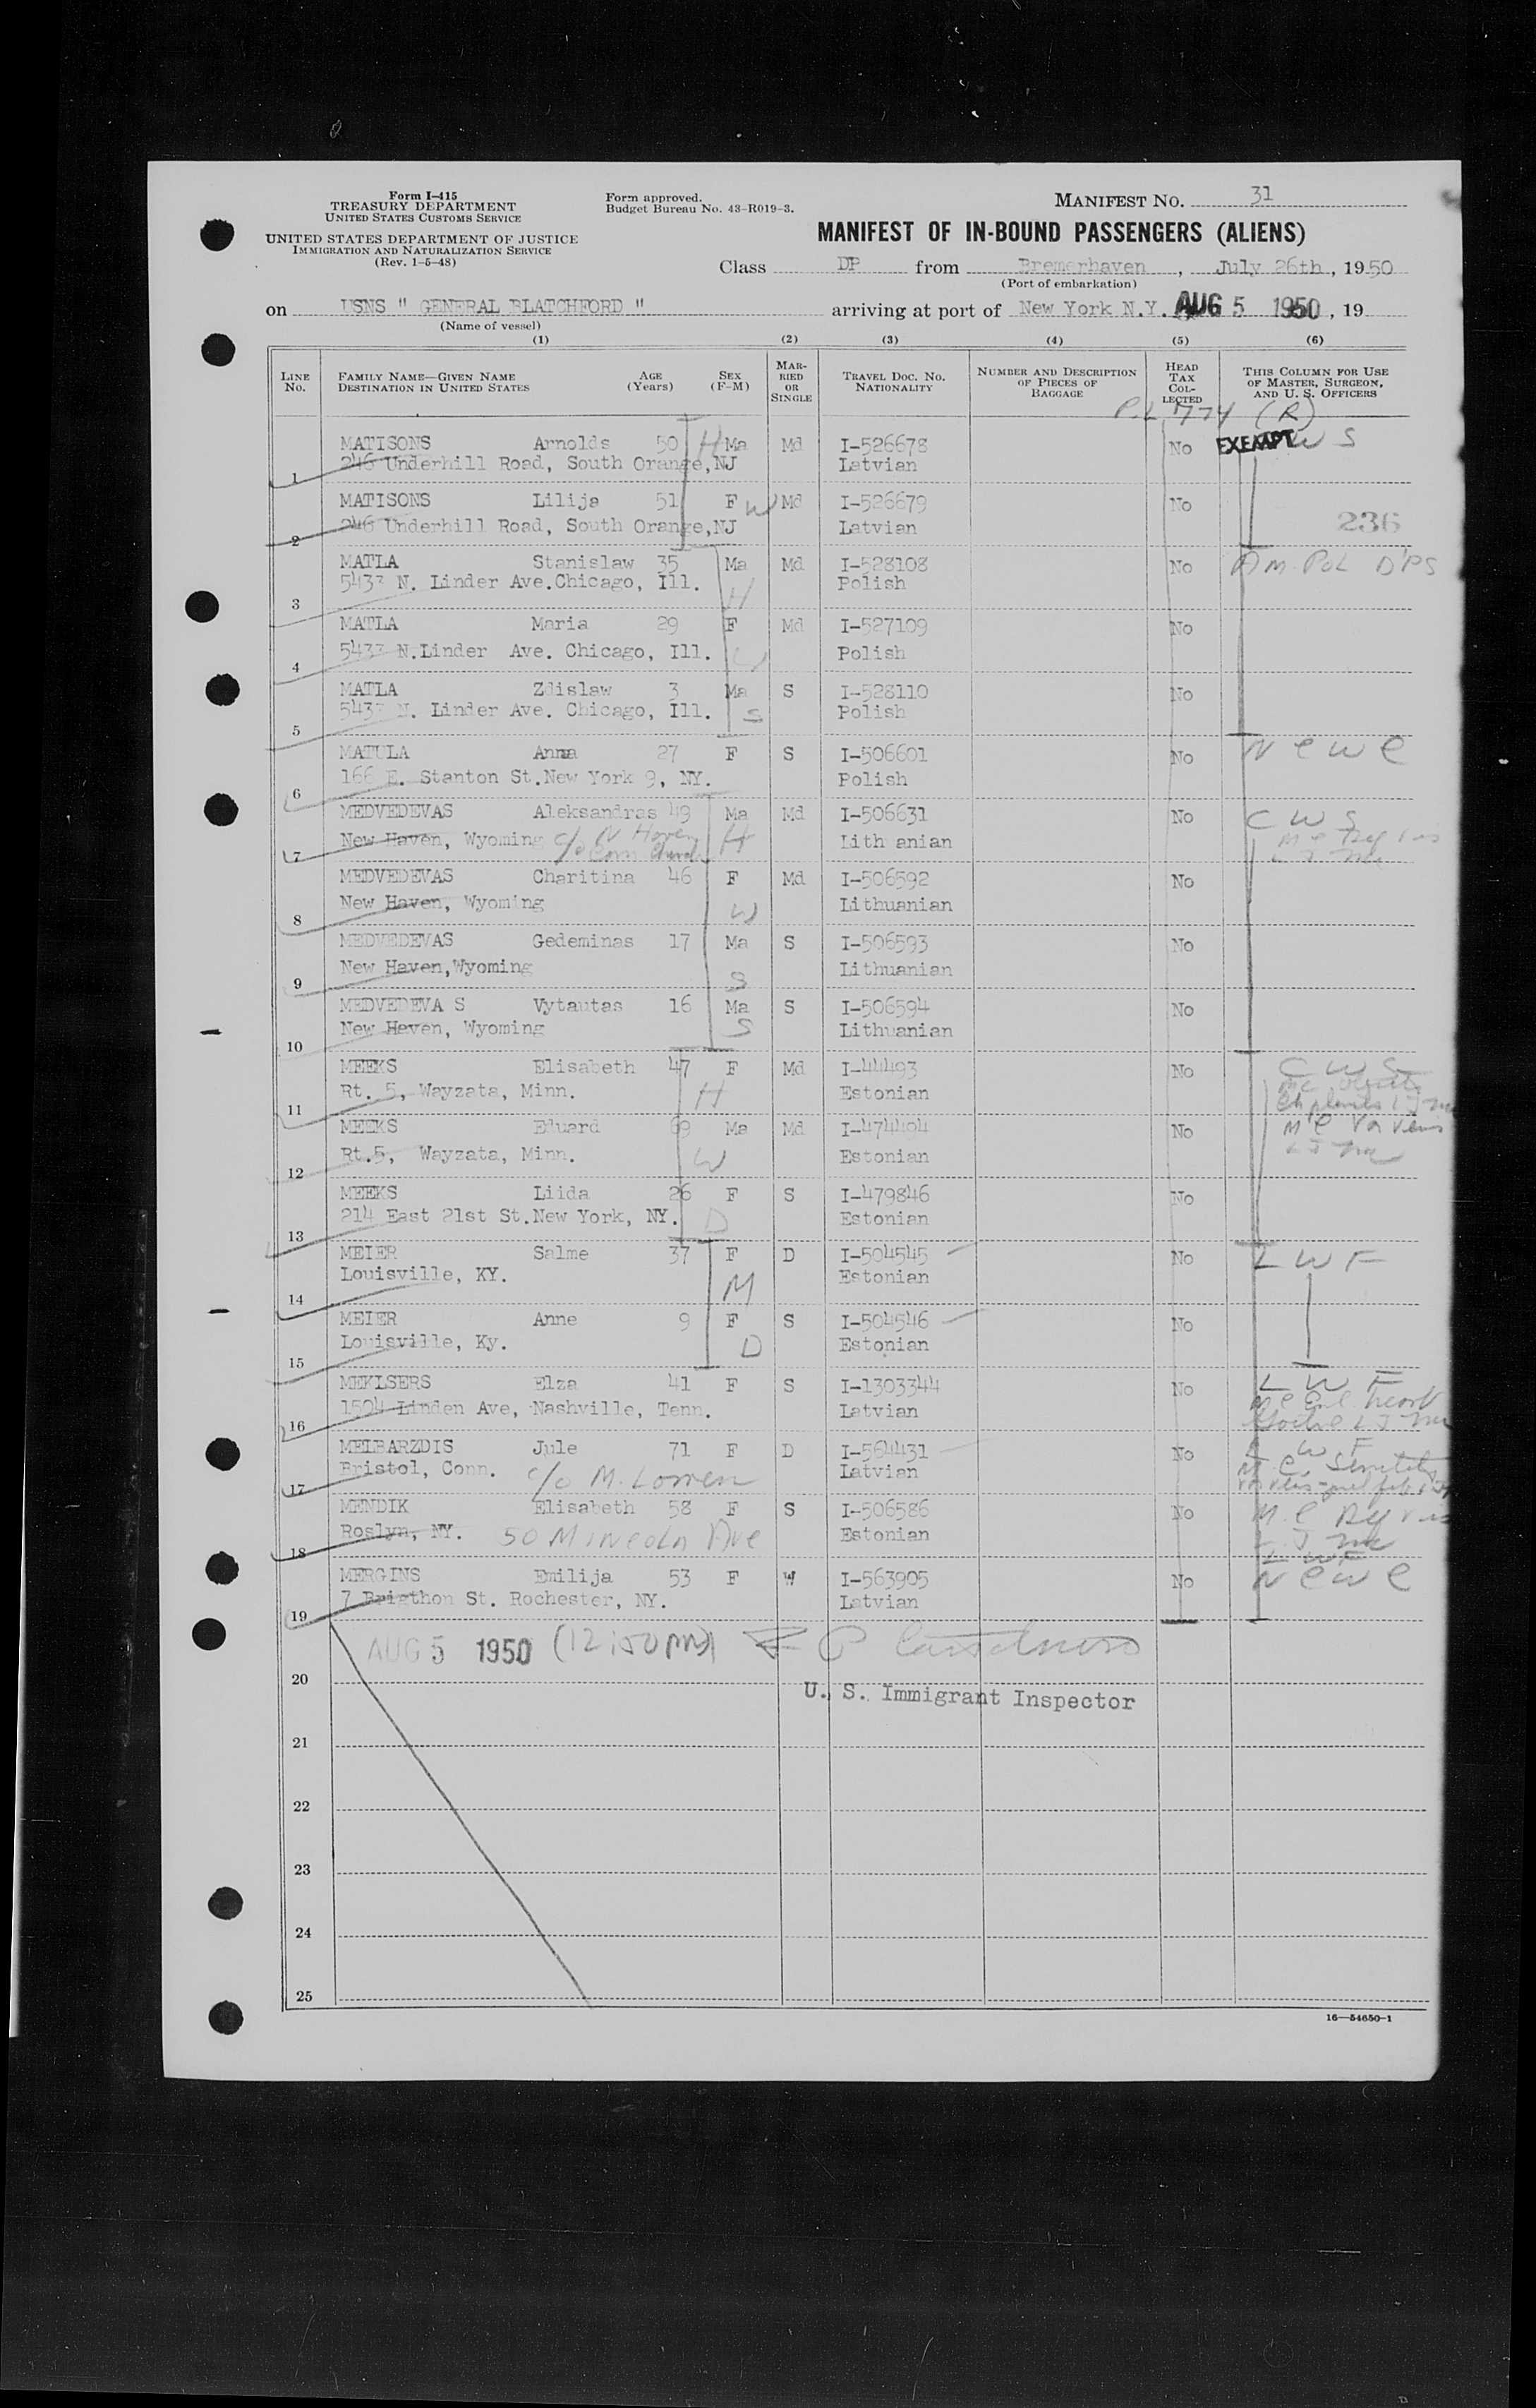 Form I-415
TREASURY DEPARTMENT
UNITED STATES CUSTOMS SERVICE
UNITED STATES DEPARTMENT OF JUSTICE
IMMIGRATION AND NATURALIZATION SERVICE
(Rev. 1-5-48)
Form approved.
Budget Bureau No. 43-R019-3.
MANIFEST NO. 31
MANIFEST OF IN-BOUND PASSENGERS (ALIENS)
Class DP from Bremerhaven, July 26th, 1950
(Port of embarkation)
on USNS " GENERAL BLATCHFORD " arriving at port of New York N.Y. AUG 5 1950, 19
(Name of vessel)
(1) (2) (3) (4) (5) (6)
LINE NO. FAMILY NAME—GIVEN NAME DESTINATION IN UNITED STATES AGE (Years) SEX (F-M) MARRIED OR SINGLE TRAVEL DOC. NO. NATIONALITY NUMBER AND DESCRIPTION OF PIECES OF BAGGAGE HEAD TAX COLLECTED THIS COLUMN FOR USE OF MASTER, SURGEON, AND U. S. OFFICERS
P.L 774 (R)
MATISONS Arnolds 50 H Ma Md I-526678 No EXEMPT W S
1 246 Underhill Road, South Orange, NJ Latvian
MATISONS Lilija 51 F W Md I-526679 No
2 246 Underhill Road, South Orange, NJ Latvian 236
MATLA Stanislaw 35 Ma Md I-528108 No AM. POL D'PS
3 5433 N. Linder Ave. Chicago, Ill. H Polish
MATLA Maria 29 F Md I-527109 No
4 5433 N. Linder Ave. Chicago, Ill. W Polish
MATLA Zdislaw 3 Ma S I-528110 No
5 5433 N. Linder Ave. Chicago, Ill. S Polish
MATULA Anna 27 F S I-506601 No N C W C
6 166 E. Stanton St. New York 9, NY. Polish
MEDVEDEVAS Aleksandras 49 Ma Md I-506631 No C W S
7 New Haven, Wyoming c/o N Haven H Lithuanian
MEDVEDEVAS Charitina 46 F Md I-506592 No
8 New Haven, Wyoming W Lithuanian
MEDVEDEVAS Gedeminas 17 Ma S I-506593 No
9 New Haven, Wyoming S Lithuanian
MEDVEDEVA S Vytautas 16 Ma S I-506594 No
10 New Haven, Wyoming S Lithuanian
MEEKS Elisabeth 47 F Md I-44493 No C W S
11 Rt. 5, Wayzata, Minn. H Estonian
MEEKS Eduard 69 Ma Md I-474494 No
12 Rt.5, Wayzata, Minn. W Estonian
MEEKS Liida 26 F S I-479846 No
13 214 East 21st St. New York, NY. D Estonian
MEIER Salme 37 F D I-504545 No L W F
14 Louisville, KY. M Estonian
MEIER Anne 9 F S I-504546 No
15 Louisville, Ky. D Estonian
MEKLSERS Elza 41 F S I-1303344 No L W F
16 1504 Linden Ave, Nashville, Tenn. Latvian
MELBARZDIS Jule 71 F D I-564431 No L W F
17 Bristol, Conn. c/o M. Lorren Latvian
MENDIK Elisabeth 58 F S I-506586 No
18 Roslyn, NY. 50 Mineola Ave Estonian L W F
MERGINS Emilija 53 F W I-563905 No N C W C
19 7 Brigthon St. Rochester, NY. Latvian
AUG 5 1950 (12:50 PM)
20 U. S. Immigrant Inspector
21
22
23
24
25
16—54650-1